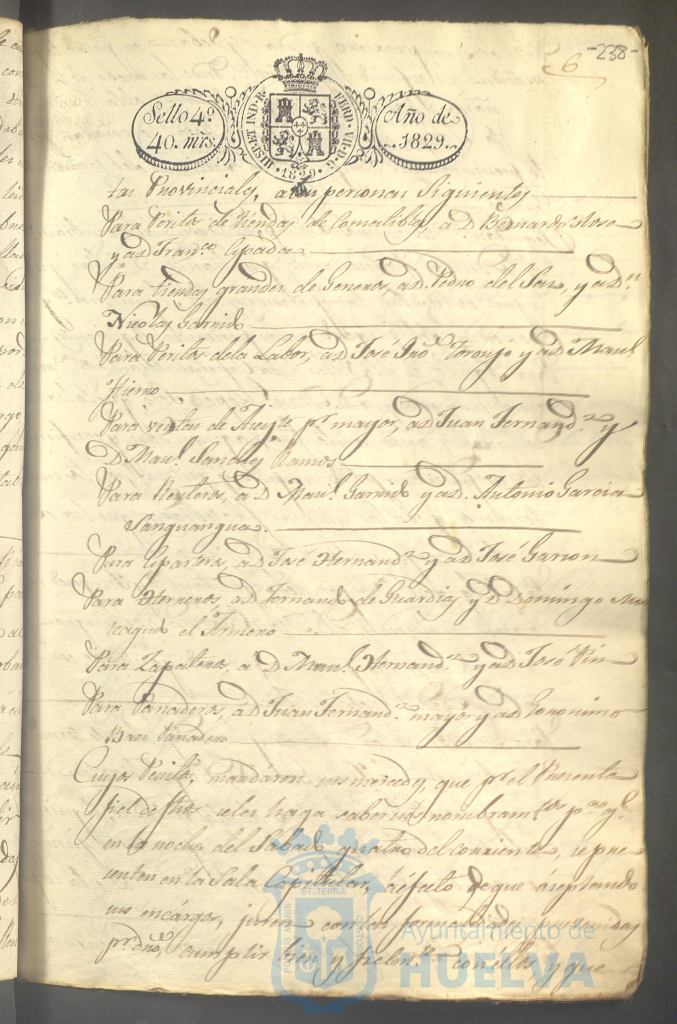 -238-
6
Sello 4º
40. mrs.
HISP. ET IND. R. FERD. VII. D. G. 1829
Año de
1829.
tas Provinciales, a las personas siguientes
Para Peritos de tiendas de Comestibles, a D. Bernardo Rose
y a D. Franco.
Para tiendas grandes de Generos, a D. Pedro del Saz, y a Dn.
Nicolas Garrido
Para Peritos de la Labor, a D. José Toronjo y a D. Manl.
Hierro
Para ventas de Azeyte pr. mayor, a D. Juan Fernandz. y
D. Manl. Sanchez Ramos
Para a D. Manl. Garrido y a D. Antonio Garcia
Sanguangua.
Para a D. José Hernandz. y a D. José Garzon
Para Herreros, a D. Fernando de Guardia, y D. Domingo
el Armero
Para Zapateros, a D. Manl. Hernandz. y a D. José Pin
Para Panaderos, a D. Juan Fernandz. mayor y a D. Geronimo
Baez Panadero
Cuyos Peritos, mandaron sus mercedes, que pr. el Presente
fiel de fhos se les haga saber sus nombramtos. pa. qe.
en la noche del Sabado quatro del corriente, se pre
senten en la Sala Capitular, á efecto de que aseptando
sus encargos, juren con las formalidades prevenidas
pr. dro., cumplir bien y fielmte. con ellos y que
PORTUS MARIS ET TERRAE CUSTODIA
Ayuntamiento de
HUELVA